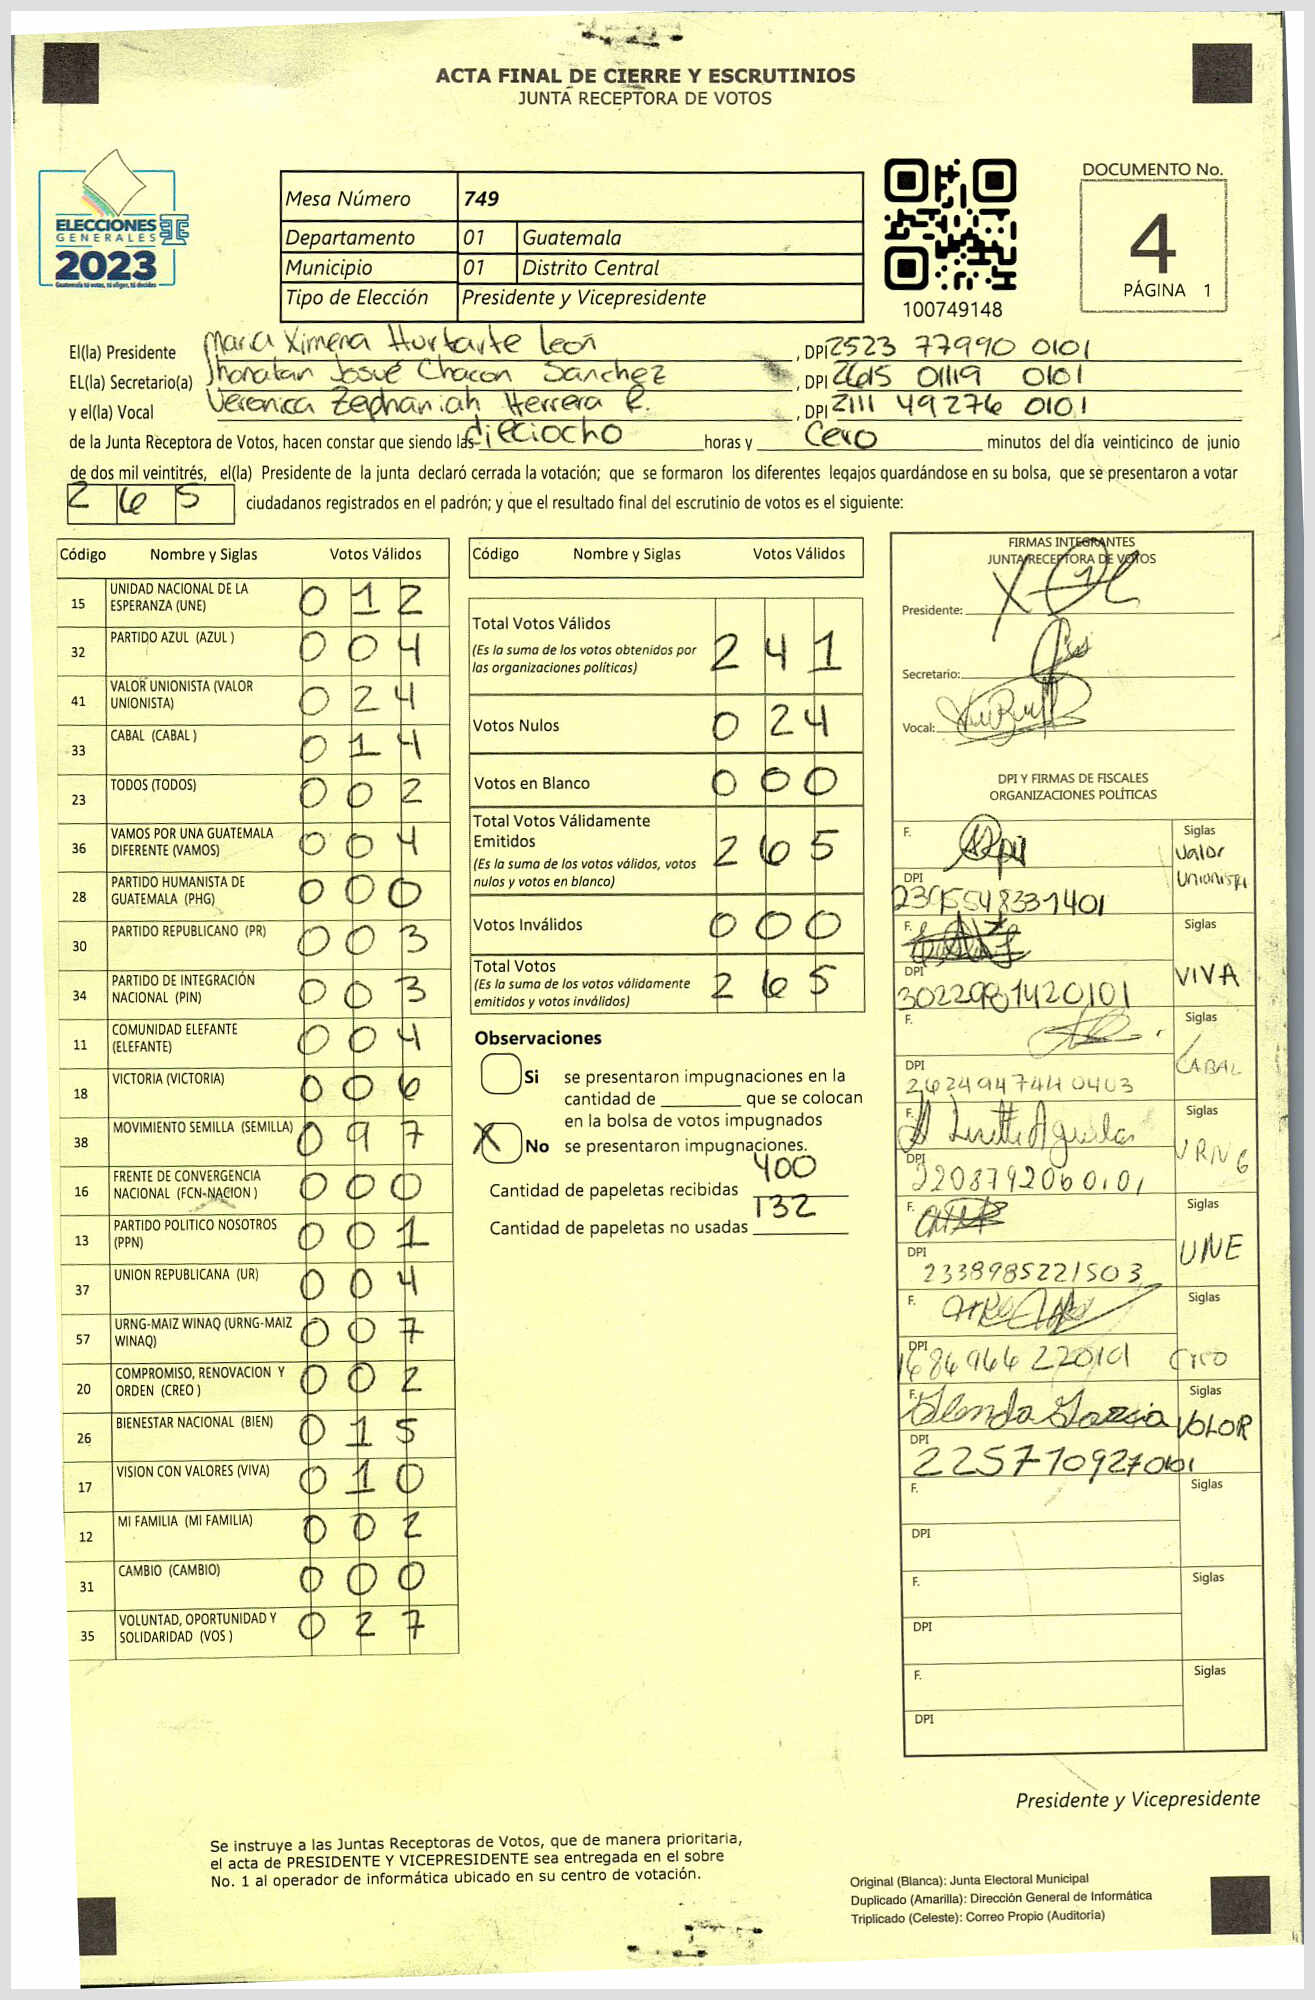 ACTA FINAL DE CIERRE Y ESCRUTINIOS
JUNTA RECEPTORA DE VOTOS
ELECCIONES
GENERALES
2023
Guatemala tú votas, tú eliges, tú decides
Mesa Número 749
Departamento 01 Guatemala
Municipio 01 Distrito Central
Tipo de Elección Presidente y Vicepresidente
100749148
DOCUMENTO No.
4
PÁGINA 1
El(la) Presidente Maria Ximena Hurtarte León, DPI 2523 77990 0101
EL(la) Secretario(a) Jhonatan Josué Chacon Sánchez, DPI 2615 01119 0101
y el(la) Vocal Veronica Zephaniah Herrera R., DPI 2111 49276 0101
de la Junta Receptora de Votos, hacen constar que siendo las dieciocho horas y cero minutos del día veinticinco de junio
de dos mil veintitrés, el(la) Presidente de la junta declaró cerrada la votación; que se formaron los diferentes legajos quardándose en su bolsa, que se presentaron a votar
265 ciudadanos registrados en el padrón; y que el resultado final del escrutinio de votos es el siguiente:
Código Nombre y Siglas Votos Válidos
15 UNIDAD NACIONAL DE LA ESPERANZA (UNE) 012
32 PARTIDO AZUL (AZUL ) 004
41 VALOR UNIONISTA (VALOR UNIONISTA) 024
33 CABAL (CABAL ) 014
23 TODOS (TODOS) 002
36 VAMOS POR UNA GUATEMALA DIFERENTE (VAMOS) 004
28 PARTIDO HUMANISTA DE GUATEMALA (PHG) 000
30 PARTIDO REPUBLICANO (PR) 003
34 PARTIDO DE INTEGRACIÓN NACIONAL (PIN) 003
11 COMUNIDAD ELEFANTE (ELEFANTE) 004
18 VICTORIA (VICTORIA) 006
38 MOVIMIENTO SEMILLA (SEMILLA) 097
16 FRENTE DE CONVERGENCIA NACIONAL (FCN-NACION ) 000
13 PARTIDO POLITICO NOSOTROS (PPN) 001
37 UNION REPUBLICANA (UR) 004
57 URNG-MAIZ WINAQ (URNG-MAIZ WINAQ) 007
20 COMPROMISO, RENOVACION Y ORDEN (CREO ) 002
26 BIENESTAR NACIONAL (BIEN) 015
17 VISION CON VALORES (VIVA) 010
12 MI FAMILIA (MI FAMILIA) 002
31 CAMBIO (CAMBIO) 000
35 VOLUNTAD, OPORTUNIDAD Y SOLIDARIDAD (VOS ) 027
Código Nombre y Siglas Votos Válidos
Total Votos Válidos 241
(Es la suma de los votos obtenidos por
las organizaciones políticas)
Votos Nulos 024
Votos en Blanco 000
Total Votos Válidamente
Emitidos 265
(Es la suma de los votos válidos, votos
nulos y votos en blanco)
Votos Inválidos 000
Total Votos 265
(Es la suma de los votos válidamente
emitidos y votos inválidos)
Observaciones
Si se presentaron impugnaciones en la
cantidad de ________ que se colocan
en la bolsa de votos impugnados
X No se presentaron impugnaciones.
Cantidad de papeletas recibidas 400
Cantidad de papeletas no usadas 132
FIRMAS INTEGRANTES
JUNTA RECEPTORA DE VOTOS
Presidente:
Secretario:
Vocal:
DPI Y FIRMAS DE FISCALES
ORGANIZACIONES POLÍTICAS
F. Siglas Valor Unionista
DPI 2395548331401
F. Siglas VIVA
DPI
F. Siglas CABAL
DPI 2624947440403
F. Linette Aguilar Siglas URNG
DPI 2208792060101
F. Siglas UNE
DPI 2338985221503
F. Siglas
DPI
F. Glenda Garcia Siglas VOLOR
DPI 22577109270101
F. Siglas
DPI
F. Siglas
DPI
F. Siglas
DPI
Presidente y Vicepresidente
Se instruye a las Juntas Receptoras de Votos, que de manera prioritaria,
el acta de PRESIDENTE Y VICEPRESIDENTE sea entregada en el sobre
No. 1 al operador de informática ubicado en su centro de votación.
Original (Blanca): Junta Electoral Municipal
Duplicado (Amarilla): Dirección General de Informática
Triplicado (Celeste): Correo Propio (Auditoría)